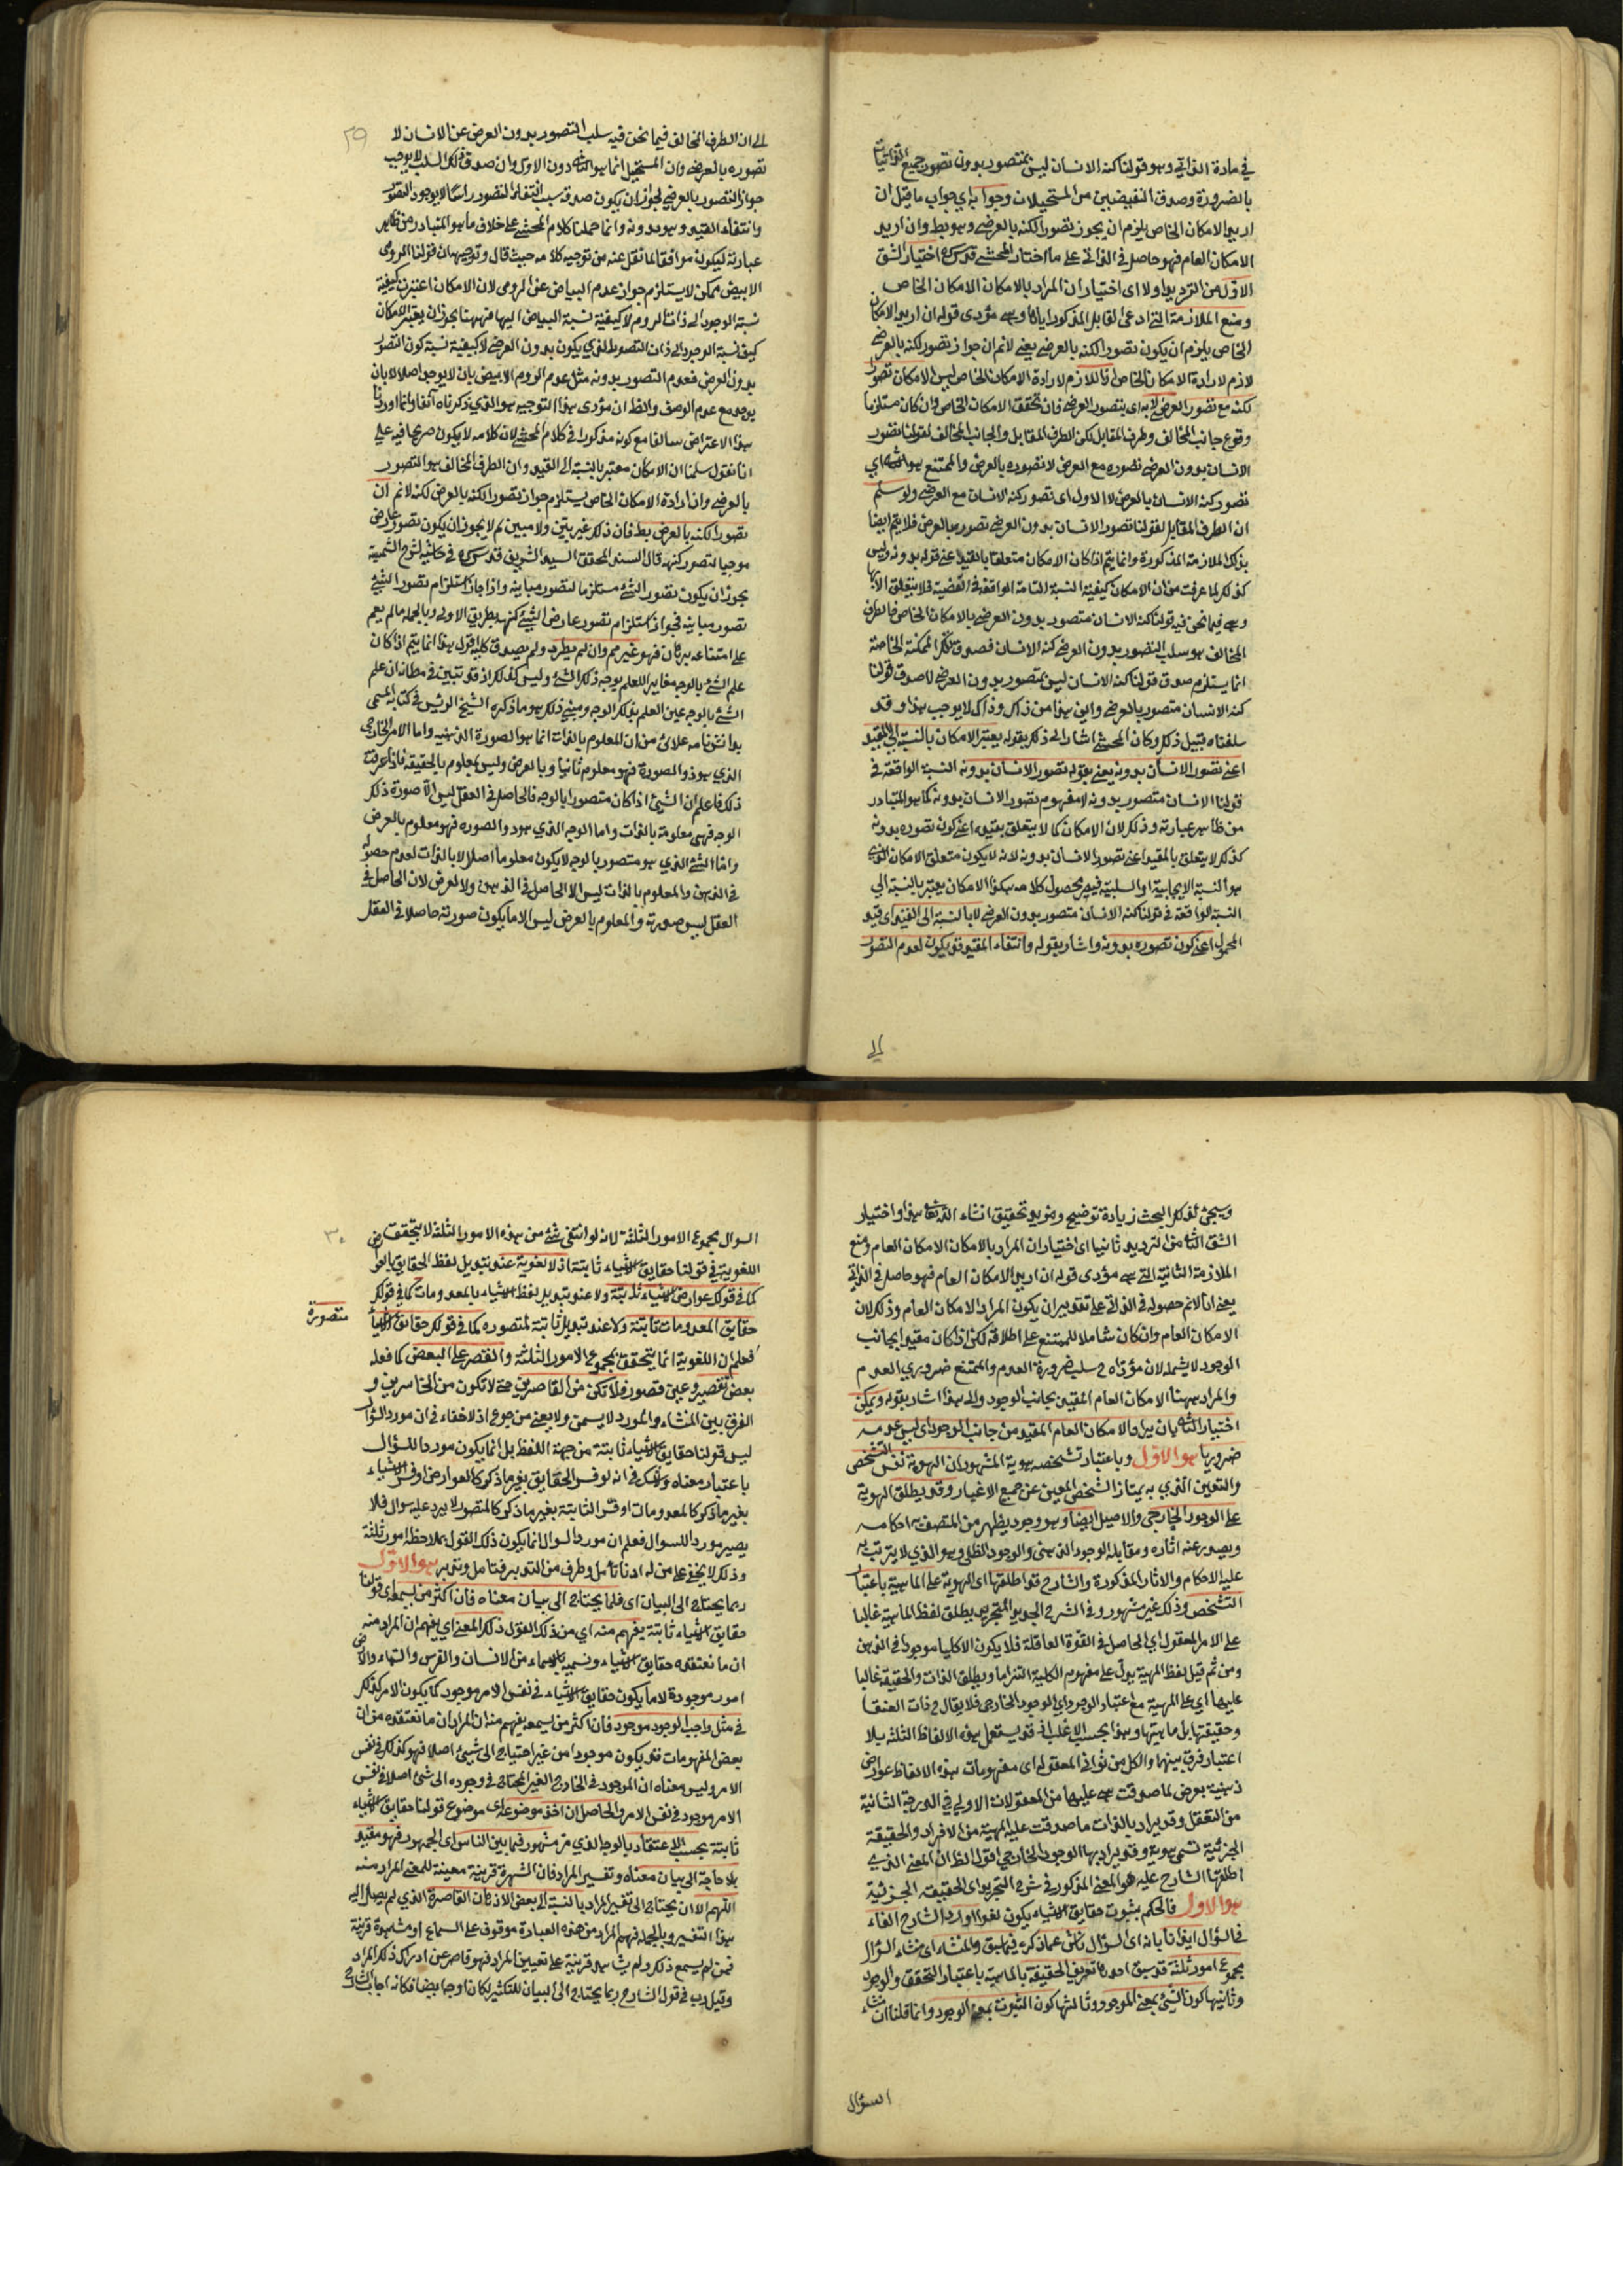 في مادة الذاتي وهو قولنا كنه الانسان ليس بمتصور بدون تصور جميع الذاتيات
بالضرورة وصدق النقيضين من المستحيلات وجوابه اي جواب ما قيل ان
اريد الامكان الخاص يلزم ان يجوز تصور الكنه بالعرضي وهو بط وان اريد
الامكان العام فهو حاصل في الذاتي على ما اختار المحشي قدس سره اختيار الشق
الاول من الترديد اولا اي اختيار ان المراد بالامكان الامكان الخاص
ومنع الملازمة التي ادعى القايل المذكور اياها وهي مؤدى قوله ان اريد الامكان
الخاص يلزم ان يكون تصور الكنه بالعرضي يعني لانم ان جواز تصور لكنه بالعرضي
لازم لارادة الامكان الخاص اذ اللازم لارادة الامكان الخاص ليس الا امكان تصور
لكنه مع تصور العرضي لا به اي بتصور العرضي فان تحقق الامكان الخاص وان كان مستلزما
وقوع جانب المخالف وطرف المقابل لكن الطرف المقابل والجانب المخالف لقولنا تصور
الانسان بدون العرضي تصوره مع العرض لا تصوره بالعرض والممتنع هو الثاني اي
تصور كنه الانسان بالعرض لا الاول اي تصور كنه الانسان مع العرضي ولو سلم
ان الطرف المقابل لقولنا تصور الانسان بدون العرضي تصوره بالعرض فلا يتم ايضا
بذلك الملازمة المذكورة وانما يتم اذا كان الامكان متعلقا بالقيد اعني قوله بدونه وليس
كذلك لما عرفت من ان الامكان كيفية النسبة التامة الواقعة في القضية فلا يتعلق الا بها
وهي فيما نحن فيه قولنا كنه الانسان متصور بدون العرضي بالامكان الخاص فالطرف
المخالف هو سلب التصور بدون العرضي كنه الانسان فصدق تلك الممكنة الخاصة
انما يستلزم صدق قولنا كنه الانسان ليس بمتصور بدون العرضي لا صدق قولنا
كنه الانسان متصور بالعرضي واين هذا من ذاك وذاك لا يوجب هذا وقد
سلفناه قبيل ذلك وكان المحشي اشار الى ذلك بقوله يعتبر الامكان بالنسبة الى المقيد
اعني تصور الانسان بدونه يعني بقوله تصور الانسان بدونه النسبة الواقعة في
قولنا الانسان متصور بدونه لا مفهوم تصور الانسان بدونه كما هو المتبادر
من ظاهر عبارته وذلك لان الامكان كما لا يتعلق بقيده اعني كون تصوره بدونه
كذلك لا يتعلق بالمقيد اعني تصور الانسان بدونه لانه لا يكون متعلق الامكان الذي
هو النسبة الايجابية او السلبية فيصير محصول كلامه هكذا الامكان يعتبر بالنسبة الى
النسبة الواقعة في قولنا كنه الانسان متصور بدون العرضي لا بالنسبة الى القيد اي قيد
المحمول اعني كون تصوره بدونه واشار بقوله وانتفاء المقيد قد يكون لعدم التصور
الى
٢٩
الى ان الطرف المخالف فيما نحن فيه سلب التصور بدون العرض عن الانسان لا
تصوره بالعرضي وان المستحيل انما هو الثاني دون الاول وان صدق ذلك السلب لا يوجب
جواز التصور بالعرضي لجواز ان يكون صدقه سبب انتفاء التصور راسا لا بوجود التصور
وانتفاء القيد وهو بدونه وانما حملنا كلام المحشي على خلاف ما هو المتبادر من ظاهر
عبارته ليكون موافقا لما نقل عنه من توجيه كلامه حيث قال وتوجيهه ان قولنا الرومي
الابيض ممكن لا يستلزم جواز عدم البياض عن الرومي لان الامكان اعتبرت كيفية
نسبة الوجود الى ذات الرومي لا كيفية نسبة البياض اليها فههنا يجوز ان يعتبر الامكان
كيف نسبة الوجود الى ذات التصور الذي يكون بدون العرضي لا كيفية نسبة كون التصور
بدون العرضي فعدم التصور بدونه مثل عدم الرومي الابيض بان لا يوجد اصلا لا بان
يوجد مع عدم الوصف والظ ان مؤدى هذا التوجيه هو الذي ذكرناه آنفا وانما اوردنا
هذا الاعتراض سالفا مع كونه مذكورا في كلام المحشي لان كلامه لا يكون صريحا فيه على
انا نقول سلمنا ان الامكان معتبر بالنسبة الى القيد وان الطرف المخالف هو التصور
بالعرضي وان ارادة الامكان الخاص يستلزم جواز تصور الكنه بالعرضي لكنه لانم ان
تصور الكنه بالعرض بط فان ذلك غير بين ولا مبين لم لا يجوز ان يكون تصور عارض
موجبا لتصور كنهه قال السند المحقق السيد الشريف قدس سره في حاشية شرح الشمسية
يجوز ان يكون تصور الشيء مستلزما لتصور مباينه واذا جاز استلزام تصور الشيء
تصور مباينه فجواز استلزام تصور عارض الشيء كنهه بطريق الاولى وبالجملة ما لم يقم
على امتناعه برهان فهو غير مم وان لم يطرد ولم يصدق كلية اقول هذا انما يتم اذا كان
علم الشيء بالوجه مغايرا للعلم بوجه ذلك الشيء وليس كذلك اذ قد تبين في مظانه ان علم
الشيء بالوجه عين العلم بذلك الوجه ومبنى ذلك هو ما ذكره الشيخ الرئيس في كتابه المسمى
بدانش نامه علائى من ان المعلوم بالذات انما هو الصورة الذهنية واما الامر الخارجي
الذي هو ذو الصورة فهو معلوم ثانيا وبالعرض وليس بمعلوم بالحقيقة فاذا عرفت
ذلك فاعلم ان الشيء اذا كان متصورا بالوجه فالحاصل في العقل ليس الا صورة ذلك
الوجه فهي معلومة بالذات واما الوجه الذي هو ذو الصوره فهو معلوم بالعرض
واما الشيء الذي هو متصور بالوجه لا يكون معلوما اصلا لا بالذات لعدم حصوله
في الذهن والمعلوم بالذات ليس الا الحاصل في الذهن ولا بالعرض لان الحاصل في
العقل ليس صورته والمعلوم بالعرض ليس الا ما يكون صورته حاصلا في العقل
وسيجئ لذلك البحث زيادة توضيح ومزيد تحقيق ان شاء الله تعالى هذا واختيار
الشق الثاني من الترديد ثانيا اي اختيار ان المراد بالامكان الامكان العام ومنع
الملازمة الثانية التي هي مؤدى قوله ان اريد الامكان العام فهو حاصل في الذاتي
يعني انا لانم حصوله في الذاتي على تقدير ان يكون المراد الامكان العام وذلك لان
الامكان العام وان كان شاملا للممتنع على اطلاقه لكن اذا كان مقيدا بجانب
الوجود لا يشمله لان مؤداه ح سلب ضرورة العدم والممتنع ضروري العدم
والمراد ههنا الامكان العام المقيد بجانب الوجود والى هذا اشار بقوله ويمكن
اختيار الثاني بان يراد الامكان العام المقيد من جانب الوجود اي ليس عدمه
ضروريا هو الاول وباعتبار تشخصه هوية المشهور ان الهوية نفس التشخص
والتعين الذي به يمتاز الشخص المعين عن جميع الاغيار وقد يطلق الهوية
على الوجود الخارجي والاصيل ايضا وهو وجود يظهر من المتصف به احكامه
ويصدر عنه آثاره ومقابله الوجود الذهني والوجود الظلي وهو الذي لا يترتب به
عليه الاحكام والاثار المذكورة والشارح قد اطلقها اي الهوية على الماهية باعتبار
التشخص وذلك غير مشهور وفي الشرح الجديد للتجريد يطلق لفظ الماهية غالبا
على الامر المعقول اي الحاصل في القوة العاقلة فلا يكون الا كليا موجودا في الذهن
ومن ثم قيل لفظ المهية يدل على مفهوم الكلية التزاما ويطلق الذات والحقيقة غالبا
عليها اي على المهية مع اعتبار الوجود اي الوجود الخارجي فلا يقال ح ذات العنقا
وحقيقتها بل ماهيتها وهذا بحسب الاغلب اذ قد يستعمل هذه الالفاظ الثلثة بلا
اعتبار فرق بينهما والكل من ثواني المعقولة اي مفهومات هذه الالفاظ عوارض
ذهنية يعرض لما صدقت هي عليها من المعقولات الاولى في الدرجة الثانية
من التعقل وقد يراد بالذات ما صدقت عليه المهية من الافراد والحقيقة
الجزئية تسمى هوية وقد يراد بها الوجود الخارجي اقول الظ ان المعنى الذي
اطلقها الشارح عليه هو المعنى المذكور في شرح التجريد اي الحقيقة الجزئية
هو الاول فالحكم بثبوت حقايق الاشياء يكون لغوا اورد الشارح الفاء
في السؤال ايذانا بانه اي السؤال ناش عما ذكره فيما سبق والمنشاء اي منشاء السؤال
مجموع امور ثلثة قد سبق احدها تعريف الحقيقة بالماهية باعتبار التحقق والوجود
وثانيها كون الشيء بمعنى الموجود وثالثها كون الثبوت بمعنى الوجود وانما قلنا ان منشاء
السؤال
٣٠
السوال مجموع الامور الثلثة لانه لو انتفى شيء من هذه الامور الثلثة لا يتحقق
اللغوية في قولنا حقايق الاشياء ثابتة اذ لا لغوية عند تبديل لفظ الحقايق بالعوارض
كما في قولك عوارض الاشياء ثابتة ولا عند تبديل لفظ الاشياء بالمعدومات كما في قولك
حقايق المعدومات ثابتة ولا عند تبديل ثابتة لمتصوره كما في قولك حقايق الاشيا
متصورة
فعلم ان اللغوية انما يتحقق بمجموع الامور الثلثة والقصر على البعض كما فعله
بعض تقصير وعين قصور فلا تكن من القاصرين حتى لا تكون من الخاسرين و
الفرق بين المنشاء والمورد لا يسمن ولا يغني من جوع اذ لا خفاء في ان مورد السؤال
ليس قولنا حقايق الاشياء ثابتة من جهة اللفظ بل انما يكون موردا للسؤال
باعتبار معناه ولا شك في انه لو فسر الحقايق بغير ما ذكر كالعوارض او فسر الاشياء
بغير ما ذكر كالمعدومات او فسر الثابتة بغير ما ذكر كالمتصور لا يرد عليه سوال فلا
يصير موردا للسوال فعلم ان مورد السوال انما يكون ذلك القول بملاحظة امور ثلثة
وذلك لا يخفى على من له ادنا تأمل وطرف من التدبر فتامل وتدبر هو الاول
ربما يحتاج الى البيان اي قلما يحتاج الى بيان معناه فان اكثر من يسمع اي قولنا
حقايق الاشياء ثابتة يفهم منه اي من ذلك القول ذلك المعنى اي يفهم ان المراد منه
ان ما نعتقده حقايق الاشياء ونسميه بالاسماء من الانسان والفرس والسماء والارض
امور موجودة لا ما يكون حقايق الاشياء في نفس الامر موجود كما يكون الامر كذلك
في مثل واجب الوجود موجود فان اكثر من يسمعه يفهم منه ان المراد ان ما نعتقده من ان
بعض المفهومات قد يكون موجودا من غير احتياج الى شيئ اصلا فهو كذلك في نفس
الامر وليس معناه ان الموجود في الخارج الغير المحتاج في وجوده الى شئ اصلا في نفس
الامر موجود في نفس الامر والحاصل ان اخذ موضوعه اي موضوع قولنا حقايق الاشياء
ثابتة بحسب الاعتقاد بالوجه الذي مر مشهور فيما بين الناس اي الجمهور فهو مفيد
بلا حاجة الى بيان معناه وتفسير المراد فان الشهرة قرينة معينة للمعنى المراد منه
اللهم الا ان يحتاج الى تفسير المراد بالنسبة الى بعض الاذهان القاصرة الذي لم يصل اليه
هذا التفسير وبالجملة فهم المراد من هذه العبارة موقوف على السماع او مشاهدة قرينة
فمن لم يسمع ذلك ولم يشاهد قرينة على تعيين المراد فهو قاصر عن ادراك ذلك المراد
وقيل رب في قول الشارح ربما يحتاج الى البيان للتكثير لكان اوجه ايضا فكانه اجاب الشارح